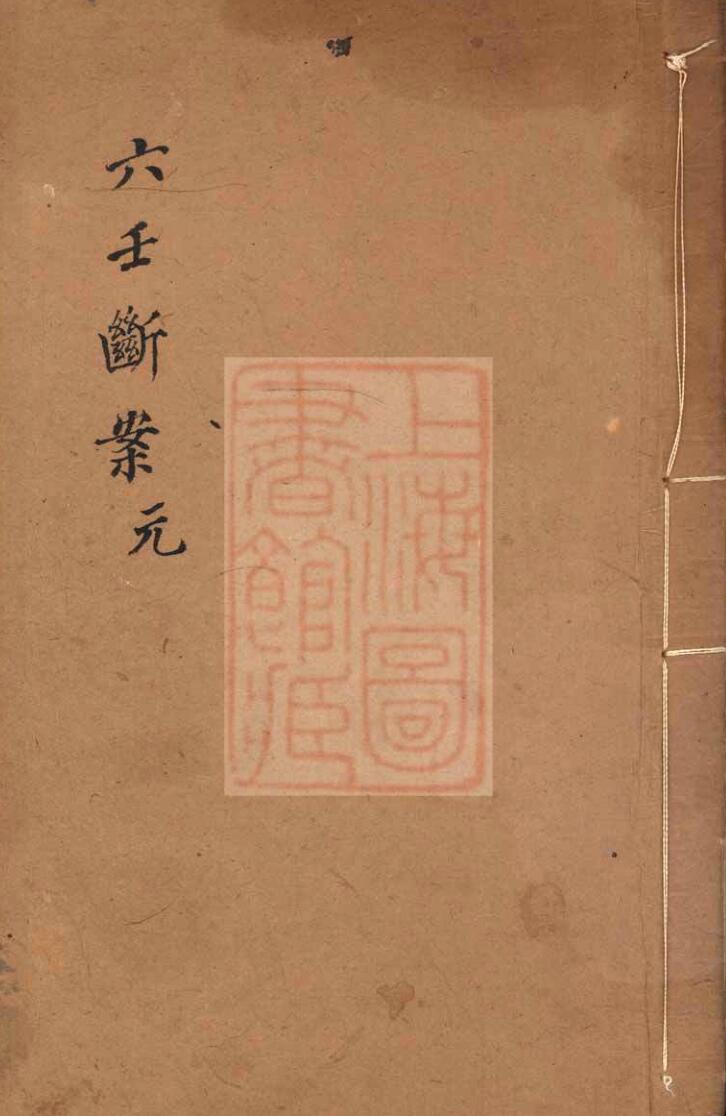 六壬斷案元
上海圖
書館藏